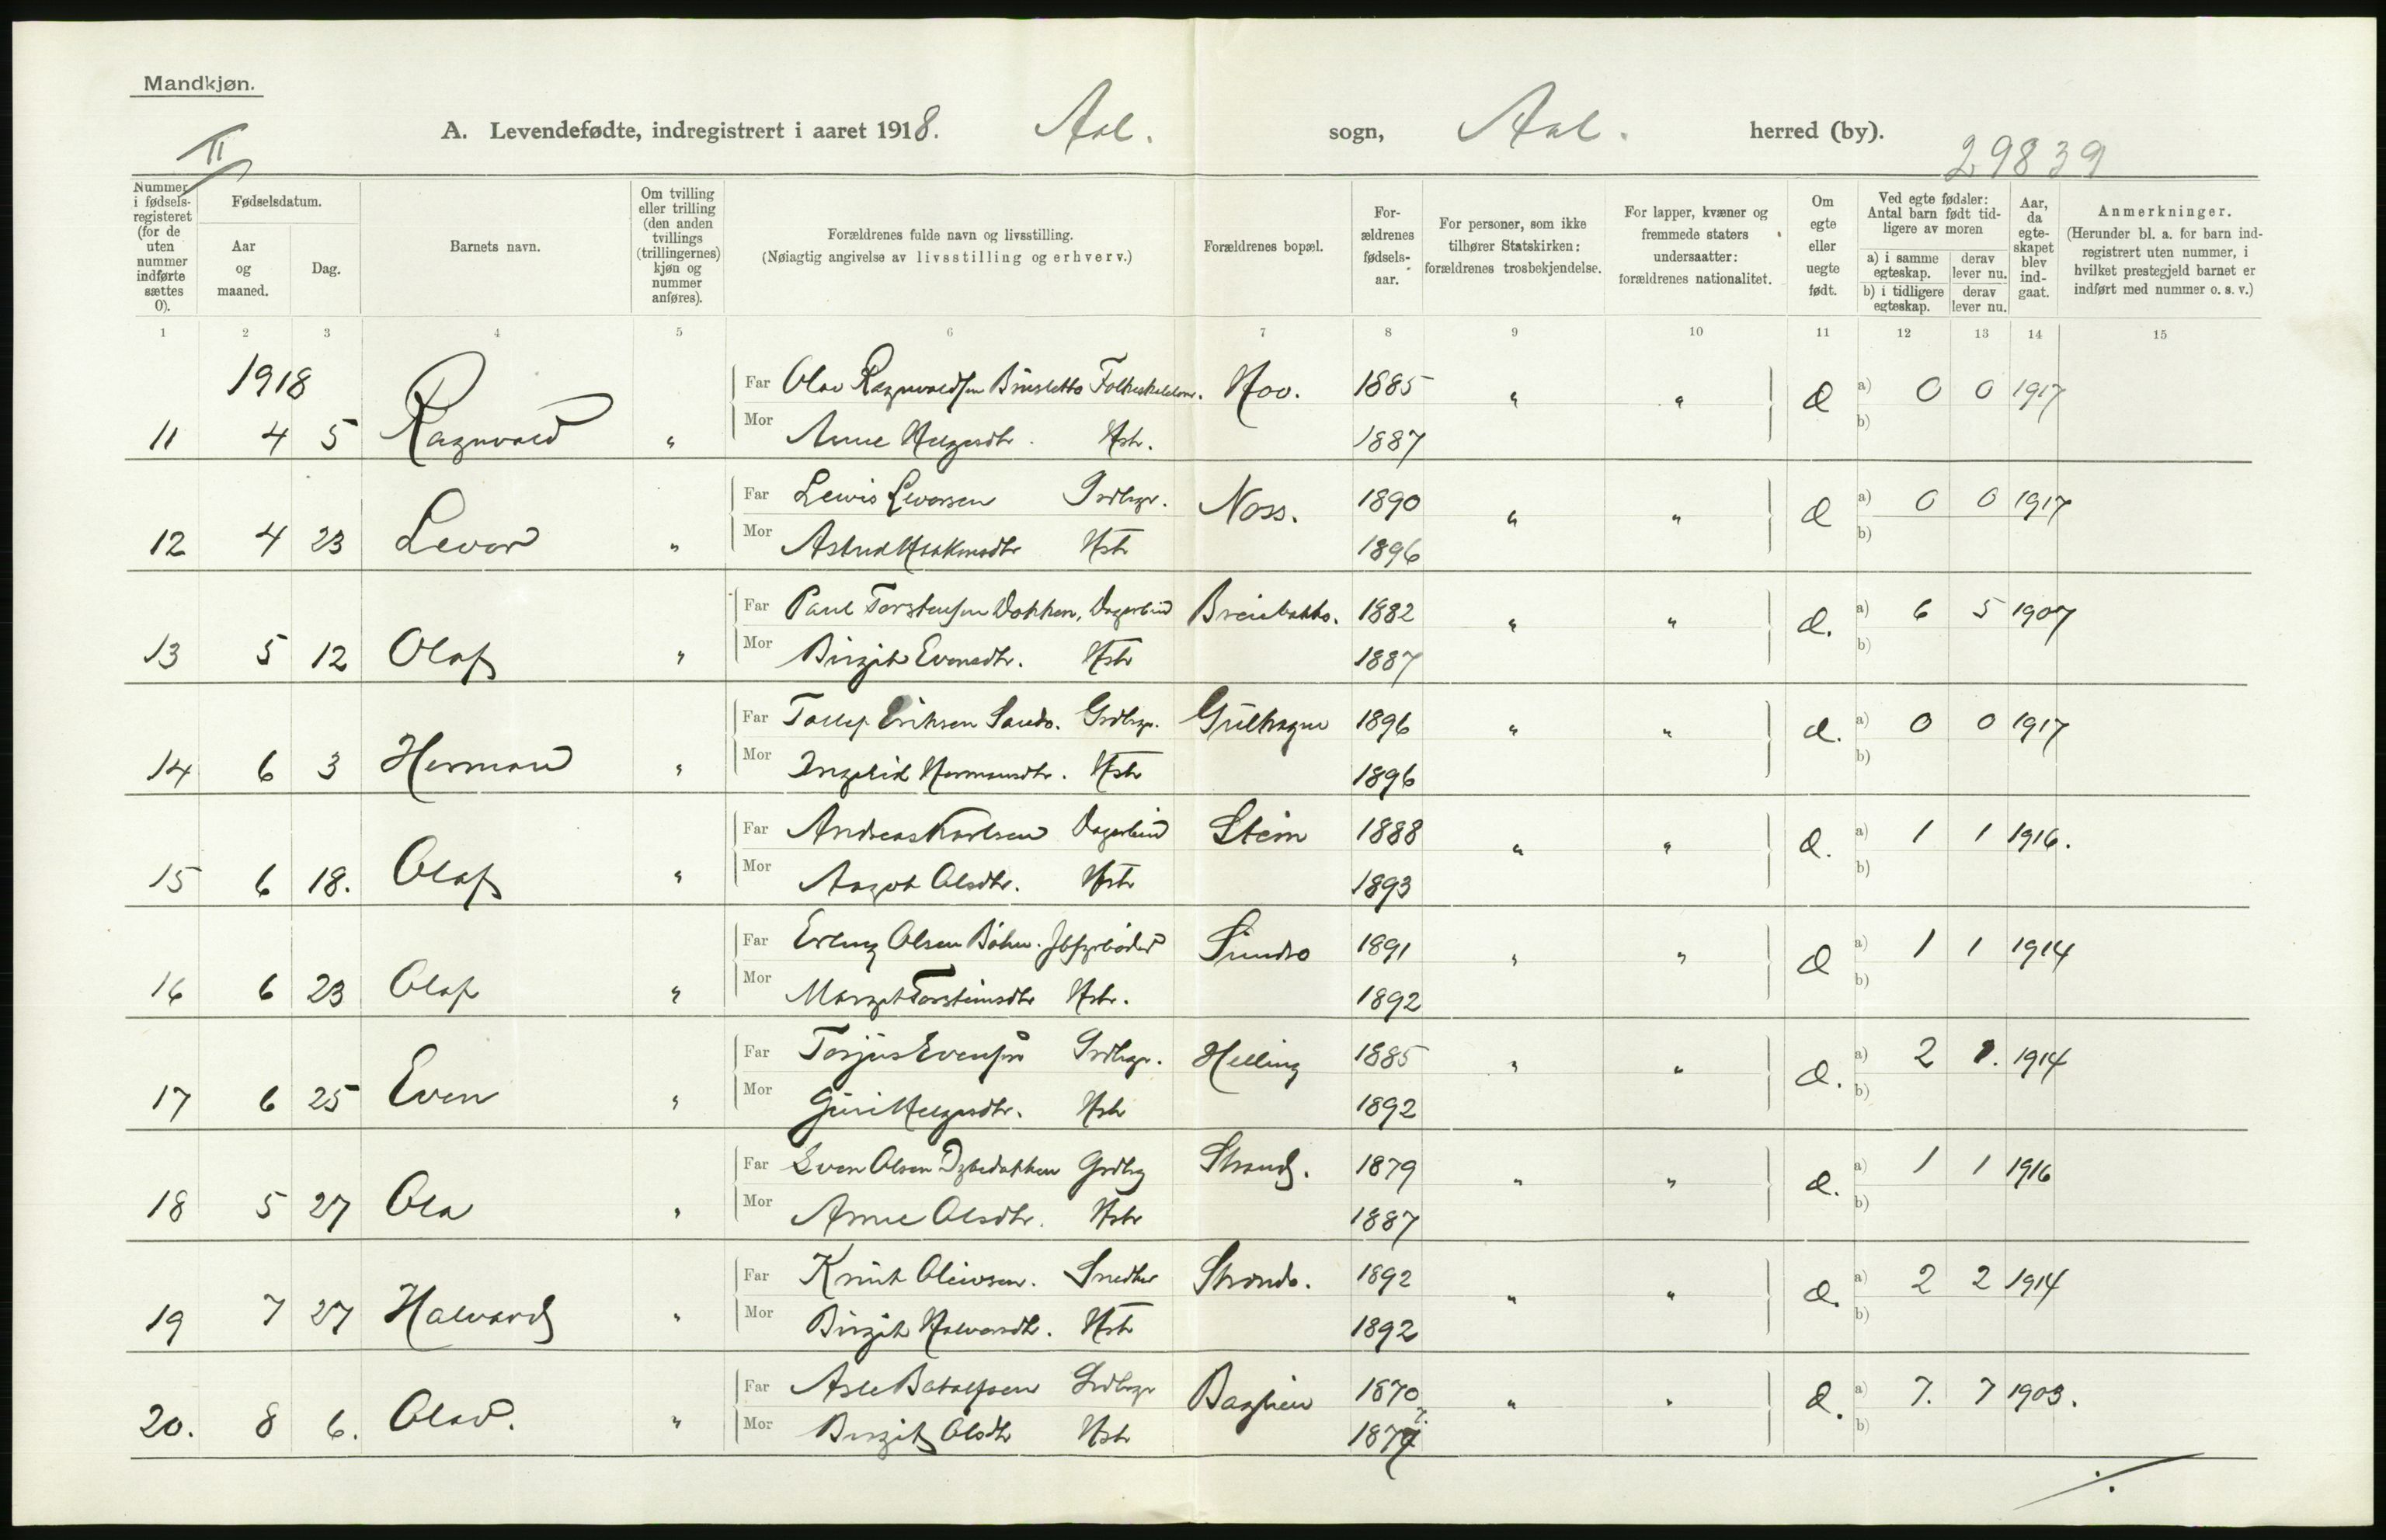 Mandkjøn.
II
A. Levendefødte, indregistrert i aaret 1918. Aal. sogn, Aal. herred (by).
29839
Nummer i fødsels-registeret (for de uten nummer indførte sættes 0).
Fødselsdatum.
Aar og maaned.
Dag.
Barnets navn.
Om tvilling eller trilling (den anden tvillings (trillingernes) kjøn og nummer anføres).
Forældrenes fulde navn og livsstilling.
(Nøiagtig angivelse av livsstilling og erhverv.)
Forældrenes bopæl.
For-ældrenes fødsels-aar.
For personer, som ikke tilhører Statskirken: forældrenes trosbekjendelse.
For lapper, kvæner og fremmede staters undersaatter: forældrenes nationalitet.
Om egte eller uegte født.
Ved egte fødsler: Antal barn født tid-ligere av moren
a) i samme egteskap. derav lever nu.
b) i tidligere egteskap. derav lever nu.
Aar, da egte-skapet blev ind-gaat.
Anmerkninger.
(Herunder bl. a. for barn ind-registrert uten nummer, i hvilket prestegjeld barnet er indført med nummer o. s. v.)
1 2 3 4 5 6 7 8 9 10 11 12 13 14 15
1918
Far Olav Ragnvaldsen Hov. 1885 " " a) 0 0 1917
11 4 5 Ragnvald " Mor Anne Helgesdtr. Hstr. 1887 b)
Far Lewis Levorsen Grdbrgr. Noss. 1890 " " a) 0 0 1917
12 4 23 Levor " Mor Astrid Haakonsdtr Hstr 1896 b)
Far Paul Torstensen Dokken, Dagarbeid Breiebakko. 1882 " " a) 6 5 1907
13 5 12 Olaf " Mor Birgit Evensdtr. Hstr 1887 b)
Far Tollef Eriksen Sando. Grdbrgr. Gulhagen 1896 " " a) 0 0 1917
14 6 3 Herman " Mor Ingebrid Hermansdtr. Hstr 1896 b)
Far Andreas Karlsen Dagarbeid Stein 1888 " " a) 1 1 1916.
15 6 18. Olaf " Mor Aagot Olsdtr. Hstr 1893 b)
Far Erling Olsen Sundro 1891 " " a) 1 1 1914
16 6 23 Olaf " Mor Margit Torsteinsdtr Hstr. 1892 b)
Far Torjus Evensen Grdbrgr. Helling 1885 " " a) 2 1. 1914
17 6 25 Even " Mor Guri Helgesdtr. Hstr 1892 b)
Far Sven Olsen Grdbrg Strand. 1879 " " a) 1 1 1916
18 5 27 Ola " Mor Anne Olsdtr. Hstr 1887 b)
Far Knut Oleivsen. Snedker Strando. 1892 " " a) 2 2 1914
19 7 27 Halvard " Mor Birgit Halvorsdtr. Hstr 1892 b)
Far Asle Botolfsen Grdbrgr 1870 " " a) 7. 7 1903.
20. 8 6. Olav. " Mor Birgit Olsdtr Hstr 1877 b)